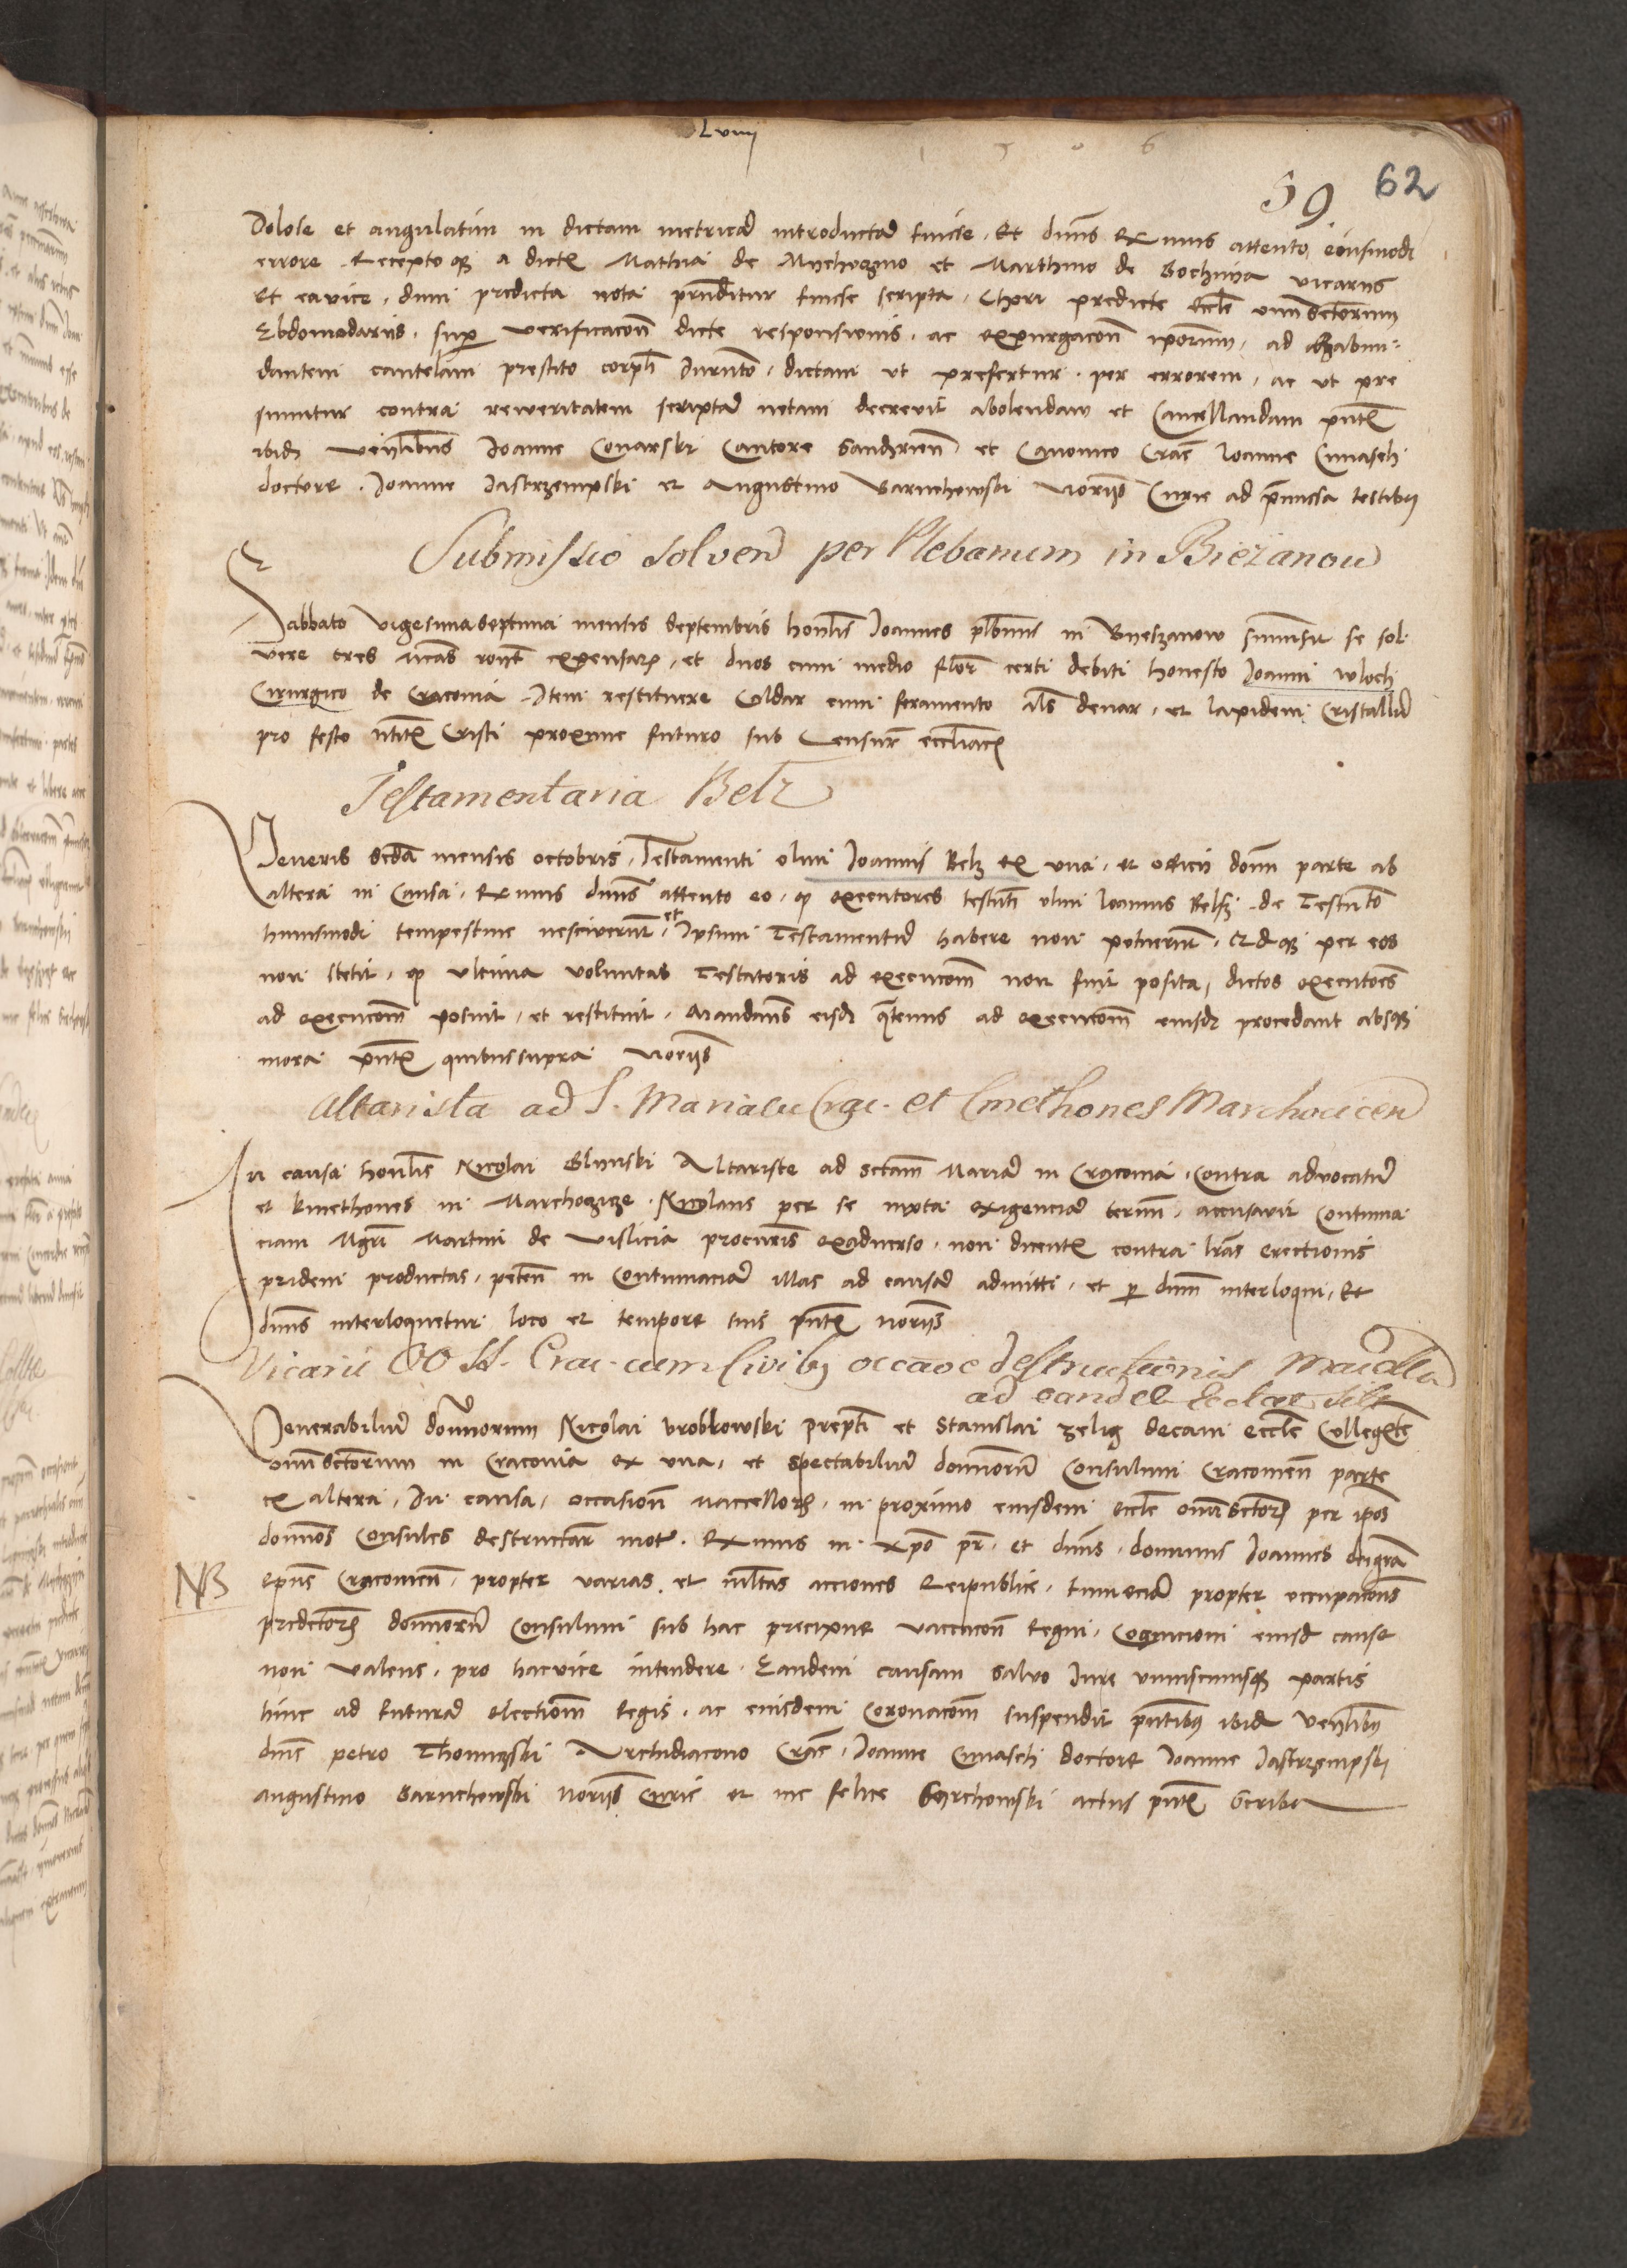 Lviiij
1 5 0 6
59. 62
Dolose et angulatim in dictam metricam introductam fuisse. Et dnus Rximus attento eiusmodi
errore Recepto q3 a dictis Mathia de Myechozyno et Marthino de Bochnija vicariis
et ea vice, dum predicta nota prtenditur fuisse scripta, Chori predicte Eccle omnisctorum
Ebdomadariis, super verificacoem dicte responsionis, ac expurgacoem iporum, ad abun:
dantem cautelam prestito corpli Jurnto, dictam ut prefertur, per errorem, ac ut pre
sumitur contra reiveritatem scriptam notam decrevit abolendam et Cancellandam pntibus
ibid3 venlibus Joanne Conarski Cantore Sandzrien et Canonico Crac Joanne Cunasch
doctore, Joanne Jastrzempski et Augustino Barnchowski Noriis Curie ad premissa testibus
Submissio solven per Plebanum in Biezanow
Sabbato vigesimaseptima mensis Septembris honlis Joannes plbnus in Byeszanow submisit se sol:
vere tres mcas ront expensarum, et duos cum medio flor certi debiti honesto Joanni Wloch
Cirurgico de Cracovia. Item restituere Coldar cum feramento als denar, et lapidem Cristallum
pro festo ntitis Cristi proxime futuro sub Censuris ecclasticis
Testamentaria Belz
Veneris scda mensis octobris, Testamenti olim Joannis Belz ex una, et officii domni parte ab
altera in Causa, Rximus dnus attento eo, q executores testnti olim Joannis Belsz de Testnto
huiusmodi tempestive nesciverunt, et Ipsum Testamentum habere non potuerunt, per eos
non stetit, q ultima voluntas Testatoris ad execucoem non fuit posita, dictos executores
ad execucoem posuit, et restituit, Mandans eisd3 qtenus ad execucoem eiusd3 procedant absq3
mora pntibus quibussupra Noriis
Altarista ad S. Mariam Crac. et Cmethones Marchocicen
In causa honlis Nicolai Slupski Altariste ad sctam Mariam in Cracovia, Contra advocatum
et kmethones in Marchoczicze. Nicolaus per se iuxta exigenciam termini, accusavit Contuma
ciam Mgri Martini de Vislicia procuris exadverso, non dicentis contra lras erectionis
pridem productas, peten in Contumaciam illas ad causam admitti, et per dnum interloqui, Et
dnus interloquetur loco et tempore suis pntibus noriis
Vicarii OO SS. Crac. cum Civibus occaoe destructionis
ad eand
Venerabilium domnorum Nicolai Vrobkowski prepti et Stanislai zelig decani eccle Collegiate
omnisctorum in Cracovia ex una, et spectabilium domnorum Consulum Cracovien parte
ex altera, In causa, occasione maccellorum, in proximo eiusdem eccle omnisctorum per ipos
domnos Consules destructarum mota. Rximus in xpo pr, et dnus, domnus Joannes deigra
NB
epus Cracovien, propter varias et multas acciones Reipublice, tumeciam propter occupacones
predictorum domnorum Consulum sub hac precipue vaccacoem Regni, Cognicioni eiusd cause
non valens, pro hacvice intendere. Eandem causam salvo Jure uniuscuiusq3 partis
hinc ad futuram electionem Regis, ac eiusdem Coronacoem suspendit pntibus ibid venlibus
dnis petro Thomiczski Archidiacono Crac, Joanne Cunasch doctore Joanne Jastrzempski
Augustino Barnchowski Noriis Curie et me felice Serchowski actus pntis Scriba